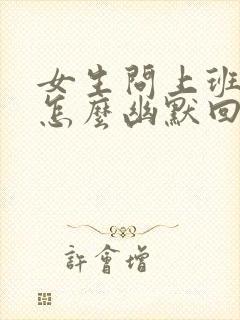 女生問上班
怎麼幽默回
許會增